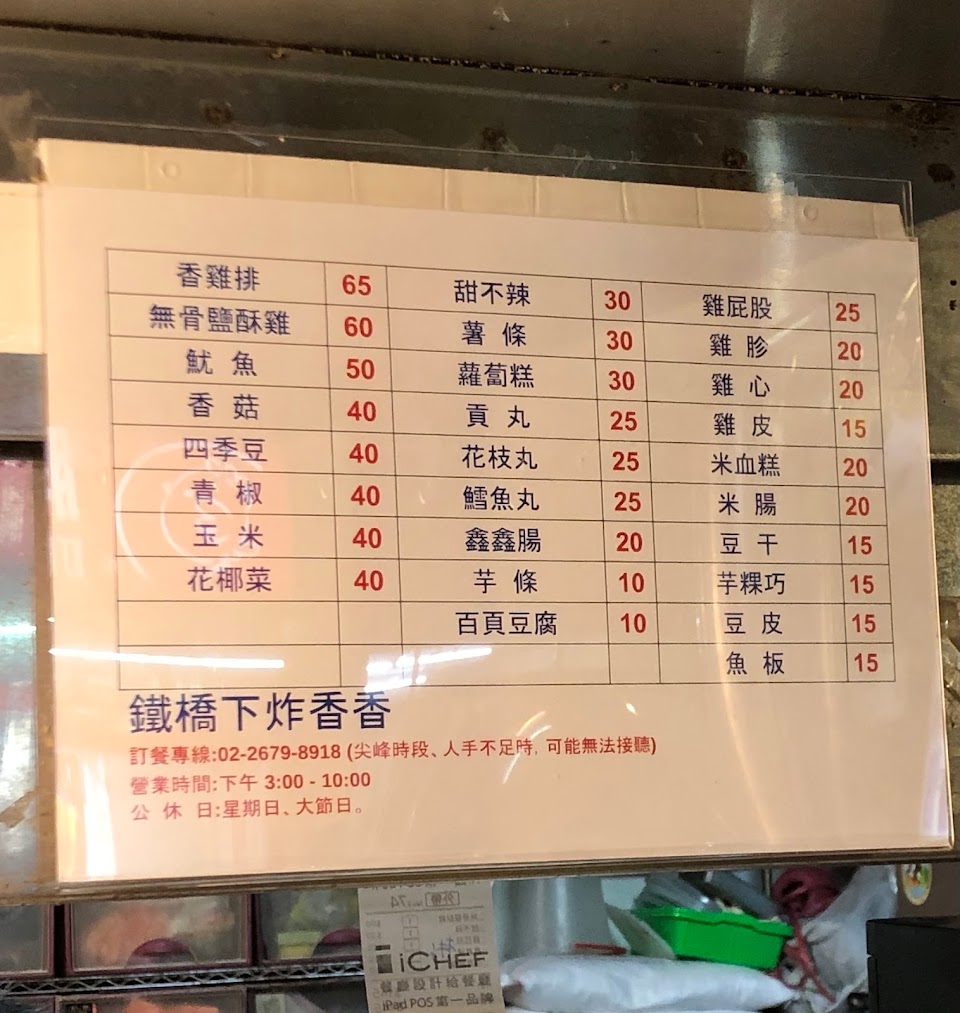 香雞排 65 甜不辣 30 雞屁股 25
無骨鹽酥雞 60 薯條 30 雞胗 20
魷魚 50 蘿蔔糕 30 雞心 20
香菇 40 貢丸 25 雞皮 15
四季豆 40 花枝丸 25 米血糕 20
青椒 40 鱈魚丸 25 米腸 20
玉米 40 鑫鑫腸 20 豆干 15
花椰菜 40 芋條 10 芋粿巧 15
百頁豆腐 10 豆皮 15
魚板 15
鐵橋下炸香香
訂餐專線:02-2679-8918 (尖峰時段、人手不足時, 可能無法接聽)
營業時間:下午 3:00 - 10:00
公休日:星期日、大節日。
iCHEF
iPad POS 第一品牌